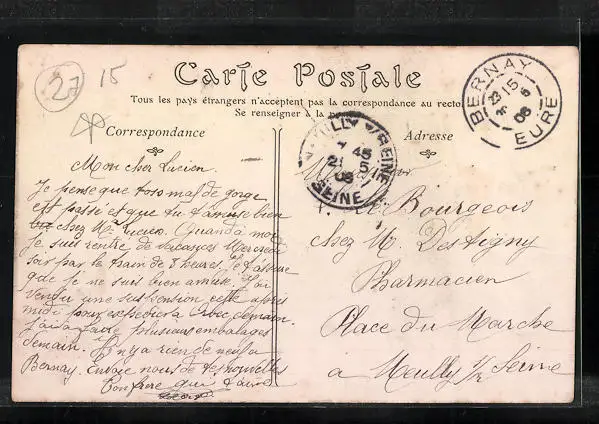 27 15
Carte Postale
Tous les pays étrangers n'acceptent pas la correspondance au recto
Se renseigner à la
Correspondance
Adresse
BERNAY
23 15
6
08
EURE
NEUILLY S/ SEINE
45
21 6
08
SEINE
Mon cher Lucien.
Je pense que ton mal de gorge
est passé est que tu t'amuse bien
chez Mr Lucien. Quand à moi
Je suis rentré de vacances Mercredi
soir par le train de 8 heures. Je t'assure
que je me suis bien amusé. J'ai
vendu une suspension cette après
midi pour expédier à demain.
j'ai à faire plusieurs embalages
demain. Il n'y a rien de neuf a
Bernay. Envoie nous de tes nouvelles
Ton frère qui t'aime
L. Bourgeois
chez M. Destigny
Pharmacien
Place du Marche
a Neuilly s/ Seine